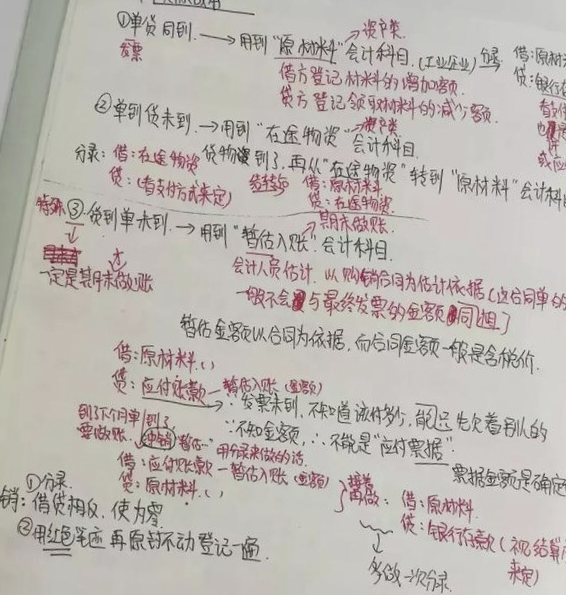 ①单货同到. → 用到"原材料"会计科目.(工业企业) 分录: 借:原材
资产类
发票
借方登记材料的增加额.
贷:银行
贷方登记领取材料的减少额.
②单到货未到. → 用到"在途物资"会计科目.
资产类
分录: 借:在途物资 货物到了,再从"在途物资"转到"原材料"会计科
贷:(看支付方式来定)
借:原材料
贷:在途物资
特殊 ③货到单未到. → 用到"暂估入账"会计科目.
期末做账.
一定是期末做账
会计人员估计. 以购销合同为估计依据(这合同单的
一般不会与最终发票的金额同]
暂估金额以合同为依据,而合同金额一般是含税价.
借:原材料.()
贷:应付账款—暂估入账(金额)
∵发票未到,不知道该付多少,能先欠着别人的
到了下个月单到了
∵不知金额,∴不能是"应付票据".
要做账. 冲销 暂估… 用分录来做的话.
票据金额是确定
借:应付账款—暂估入账(金额)
贷:原材料.()
接着再做: 借:原材料.
贷:银行存款(视结算
来定)
多做一次分录.
①分录.
销: 借贷相反. 使为零.
②用红色笔迹再原封不动登记一遍.